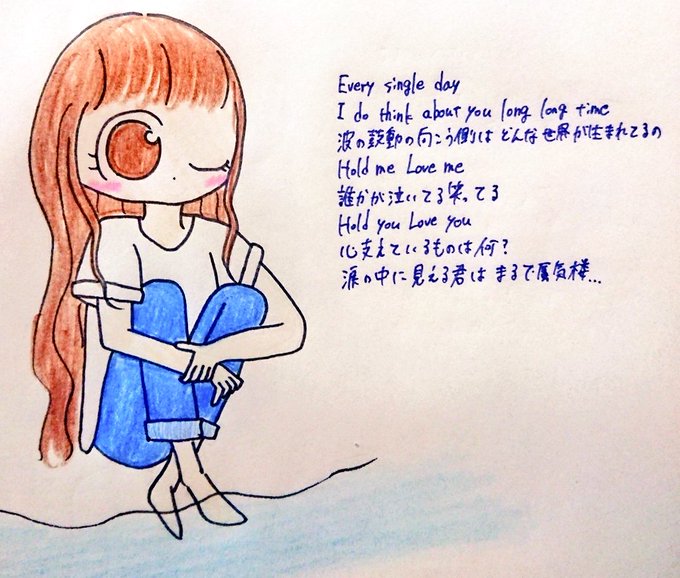 Every single day
I do think about you long long time
波の鼓動の向こう側は どんな世界が生まれてるの
Hold me Love me
誰かが泣いてる笑ってる
Hold you Love you
心支えているものは何?
涙の中に見える君は まるで蜃気楼...